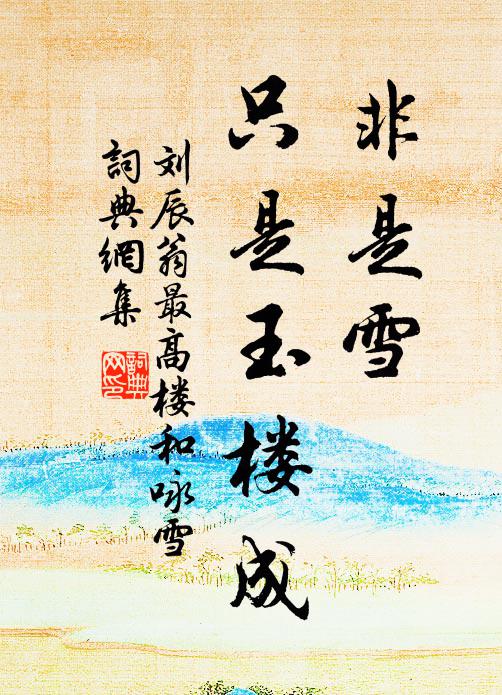 非是雪
只是玉楼成
刘辰翁最高楼和咏雪
詞典網集
詞典网印